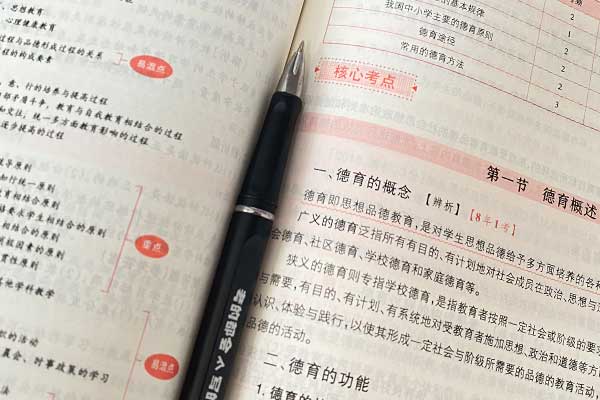 、思想教育
、心理健康教育
程与品德形成过程的关系
程的构成要素
易混点
意、行的培养与提高过程
部矛盾斗争，教育与自我教育相结合的过程
和交往，统一多方面教育影响的过程
逐步提高的过程
导原则
知行统一原则
教育相结合原则
要求学生相结合的原则
相结合的原则
极因素的原则
贯性原则
重点
他学科教学
的活动
展会、对时政的学习
易混点
法
的基本规律
我国中小学主要的德育原则
2
德育途径
1
常用的德育方法
2
3
核心考点
第一节 德育概述
一、德育的概念 【辨析】【8年1考】
德育即思想品德教育，是对学生思想品德给予多方面培养的各种
广义的德育泛指所有有目的、有计划地对社会成员在政治、思想与
会德育、社区德育、学校德育和家庭德育等。
狭义的德育则专指学校德育，是指教育者按照一定社会或阶级的要求
与需要，有目的、有计划、有系统地对受教育者施加思想、政治和道德等方
认识、体验与践行，以使其形成一定社会与阶级所需要的品德的教育活动，
品德的活动。
二、德育的功能